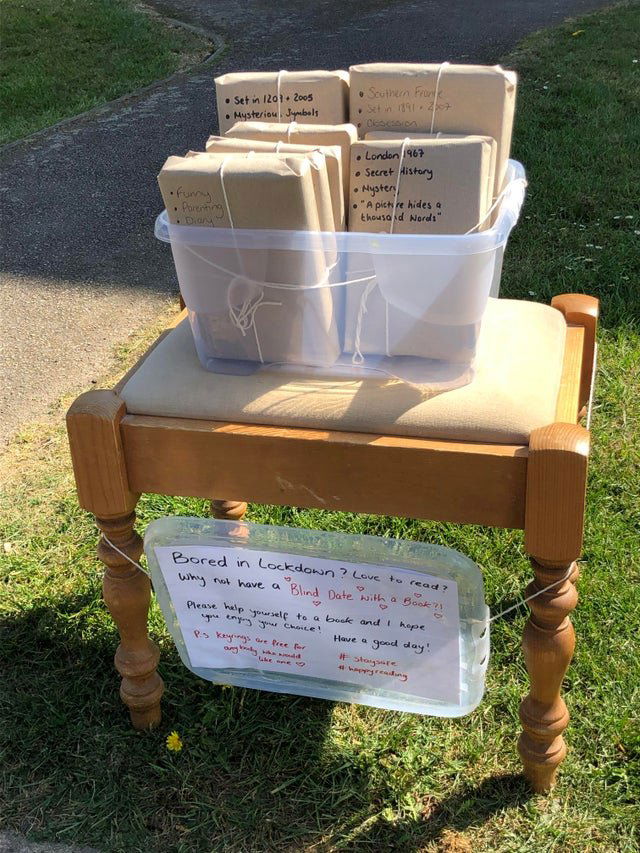 • Set in 1209 + 2005
• Mysterious Symbols
• Southern France
• Set in 1891 + 2007
• Obsession
• London 1967
• Secret History
• Mystery
• "A picture hides a
thousand words"
• Funny
• Parenting
• Diary
Bored in Lockdown? Love to read?
Why not have a Blind Date with a Book?!
Please help yourself to a book and I hope
you enjoy your choice! Have a good day!
P.S Keyrings are free for
anybody who would
like one ♡
# staysafe
# happyreading